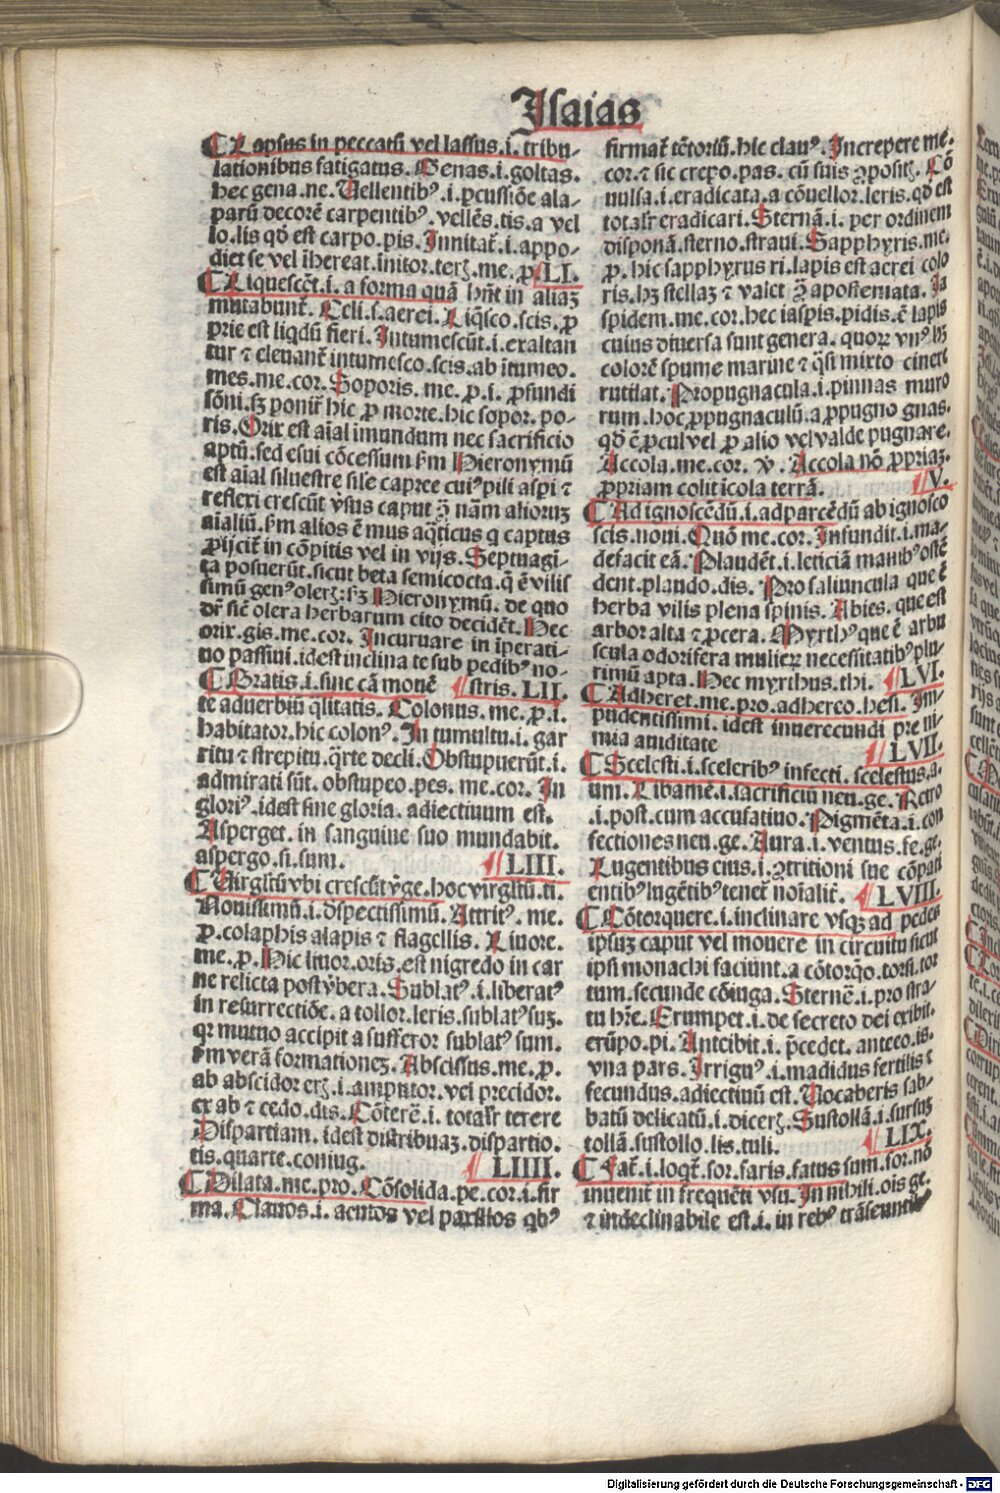 Isaias
¶ Lapsus in peccatū vel lassus.i.tribu-
lationibus fatigatus. Genas.i.goltas.
hec gena.ne. Uellentibꝰ.i.ꝑcussiōe ala-
parū decorē carpentibꝰ. vellēs.tis.a vel
lo.lis qđ est carpo.pis. Innitat᷑.i.appo-
diet se vel īhereat.īnitor.terꝫ.me.ꝓ ¶ LI.
¶ Liquescēt.i.a forma quā hn̄t in aliaꝫ
mutabunt᷑. Celi.i.aerei. Liq̄sco.scis.ꝓ
prie est liqdū fieri. Intumescūt.i.exaltan
tur ⁊ eleuant᷑ intumesco.scis.ab ītumeo.
mes.me.cor. Soporis.me.ꝓ.i.ꝓfundi
sōni.sꝫ ponit᷑ hic ꝓ morte.hic sopor.po-
ris. Orix est aīal imundum nec sacrificio
aptū.sed esui cōcessum ẜm Hieronymū
est aīal siluestre sīle capree cuiꝰ pili aspi ⁊
reflexi crescūt ꝟsus caput ꝯ̄ nām alioruꝫ
aialiū.ẜm alios ē mus aq̄ticus q captus
ꝓijcit᷑ in cōpitis vel in vijs. Septuagi-
ta posuerūt.sicut beta semicocta.q̄ ē vilis
simū genꝰ olerꝫ:sꝫ Hieronymū. de quo
dr̄ sic̄ olera herbarum cito decidēt. Hec
orix.gis.me.cor. Incuruare in īperati-
uo passiui.idest inclina te sub pedibꝰ no-
¶ Gratis.i.sine cā mouē ¶ stris. LII.
te aduerbiū q̄litatis. Colonus.me.ꝓ.i.
habitator.hic colonꝰ. In tumultu.i.gar
ritu ⁊ strepitu.q̄rte decli. Obstupuerūt.i.
admirati sūt. obstupeo.pes. me.cor. In
gloriꝰ.idest sine gloria. adiectiuum est.
Asperget. in sanguine suo mundabit.
aspergo.si.sum. ¶ LIII.
¶ Uirgl̄tū vbi crescūt ꝟge.hoc virgl̄tū.ti.
Nouissimū.i.dspectissimū. Attritꝰ. me.
ꝓ.colaphis alapis ⁊ flagellis. Liuore.
me.ꝓ. Hic liuor.oris.est nigredo in car
ne relicta post ꝟbera. Sublatꝰ.i.liberatꝰ
in resurrectiōe.a tollor.leris.sublatꝰ suꝫ.
qꝛ mutuo accipit a sufferor sublatꝰ sum.
ẜm verā formationeꝫ. Abscissus.me.ꝓ.
ab abscidor erꝫ.i.amputor.vel precidor.
ex ab ⁊ cedo.dis. Cōterē.i. totalr̄ terere
Dispartiam. idest distribuaꝫ.dispartio.
tis.quarte.coniug. ¶ LIIII.
¶ Dilata.me.pro. Cōsolida.pe.cor.i.fir
ma. Clauos.i. acutos vel paxillos qbꝰ
firmat᷑ tētoriū.hic clauꝰ. Increpere me.
cor.⁊ sic crepo.pas. cū suis ꝯpositꝫ. Cō
nulsa.i.eradicata.a cōuellor.leris.qđ est
totalr̄ eradicari. Sternā.i. per ordinem
disponā.sterno.straui. Sapphyris.me.
ꝓ. hic sapphyrus ri.lapis est aerei colo
ris.hꝫ stellaꝫ ⁊ valet ꝯ̄ apostemata. Ia
spidem.me.cor.hec iaspis.pidis.ē lapis
cuius diuersa sunt genera. quoꝝ vnꝰ hꝫ
colorē spume marine ⁊ q̄si mixto cinere
rutilat. Propugnacula.i.pinnas muro
rum.hoc ꝓpugnaculū.a ꝓpugno gnas.
qđ ē ꝓcul vel ꝓ alio vel valde pugnare.
Accola.me.cor. ꝟ. Accola nō ꝓpriaꝫ.
ꝓpriam colit īcola terrā. ¶ V.
¶ Ad ignoscēdū.i.ad parcēdū ab ignosco
scis.noui. Quō me.cor. Infundit.i.ma-
defacit eā. Plaudēt.i.leticiā manibꝰ ostē
dent.plaudo.dis. Pro saliuncula que ē
herba vilis plena spinis. Abies. que est
arbor alta ⁊ ꝓcera. Myrthꝰ que ē arbu
scula odorifera mulieꝝ necessitatibꝰ plu-
rimū apta. Hec myrthus.thi. ¶ LVI.
¶ Adheret.me.pro.adhereo.hesi. Im-
pudentissimi. idest inuerecundi pre ni-
mia auiditate ¶ LVII.
¶ Scelesti.i.scelerībꝰ infecti.scelestus.a.
um. Libamē.i.sacrificiū neu.ge. Retro
.i.post.cum accusatiuo. Pigmēta.i.con
fectiones neu.ge. Aura.i.ventus.fe.ge.
Lugentibus eius.i.ꝯtritioni sue cōpati
entibꝰ lugētibꝰ tenet᷑ noīalit᷑. ¶ LVIII.
¶ Cōtorquere.i.inclinare vsqꝫ ad pedes
ipsuꝫ caput vel mouere in circuitu sicut
ipsi monachi faciunt.a cōtorqo.torsi.tor
tum.secunde cōiuga. Sternē.i.pro stra-
tu hr̄e. Erumpet.i.de secreto dei exibit.
erūpo.pi. Anteibit.i. p̄cedet. anteeo.is.
vna pars. Irriguꝰ.i.madidus fertilis ⁊
fecundus.adiectiuū est. Uocaberis sab-
batū delicatū.i.dicerꝫ. Sustollā.i.sursuꝫ
tollā.sustollo.lis.tuli. ¶ LIX.
¶ Fat᷑.i.loqt᷑.for.faris.fatus sum.for.nō
inuenit᷑ in frequēti vsu. In nihili.ois ge.
⁊ indeclinabile est.i. in rebꝰ trāseuntibꝰ
Digitalisierung gefördert durch die Deutsche Forschungsgemeinschaft - DFG